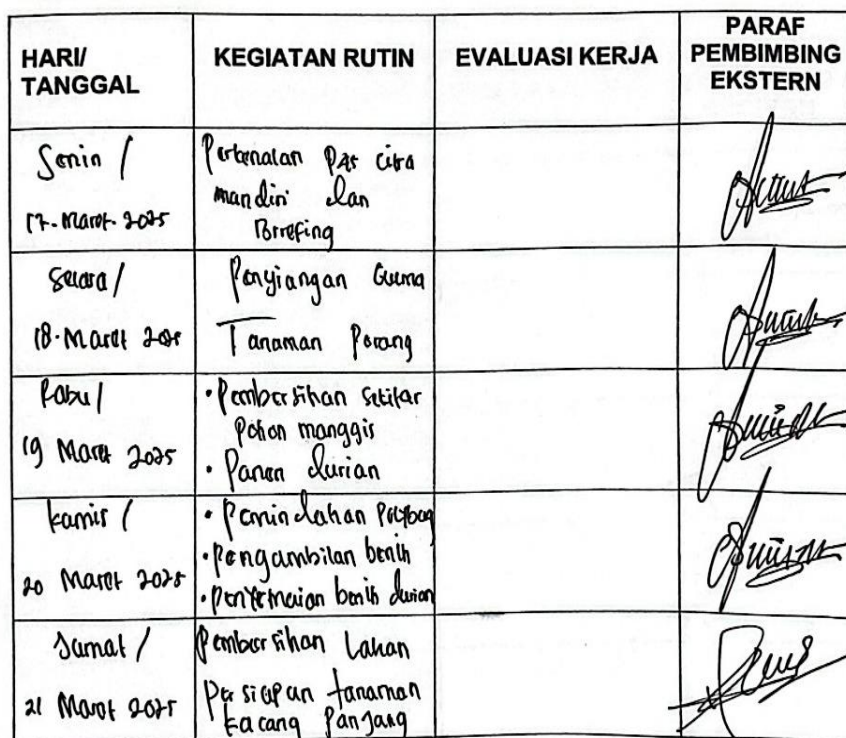 HARI/
TANGGAL
KEGIATAN RUTIN
EVALUASI KERJA
PARAF
PEMBIMBING
EKSTERN
Senin /
17-Maret-2025
Perkenalan citra
mandiri dan
Brefing
Selasa /
18-Maret 202
Penyiangan Gulma
Tanaman Porang
Rabu /
19 Maret 2025
• Pembersihan sekitar
Pohon manggis
• Panen durian
Kamis /
20 Maret 2025
• Pemindahan Polybag
• Pengambilan benih
• Penyemaian benih durian
Jumat /
21 Maret 2025
Pembersihan Lahan
Persiapan tanaman
kacang Panjang